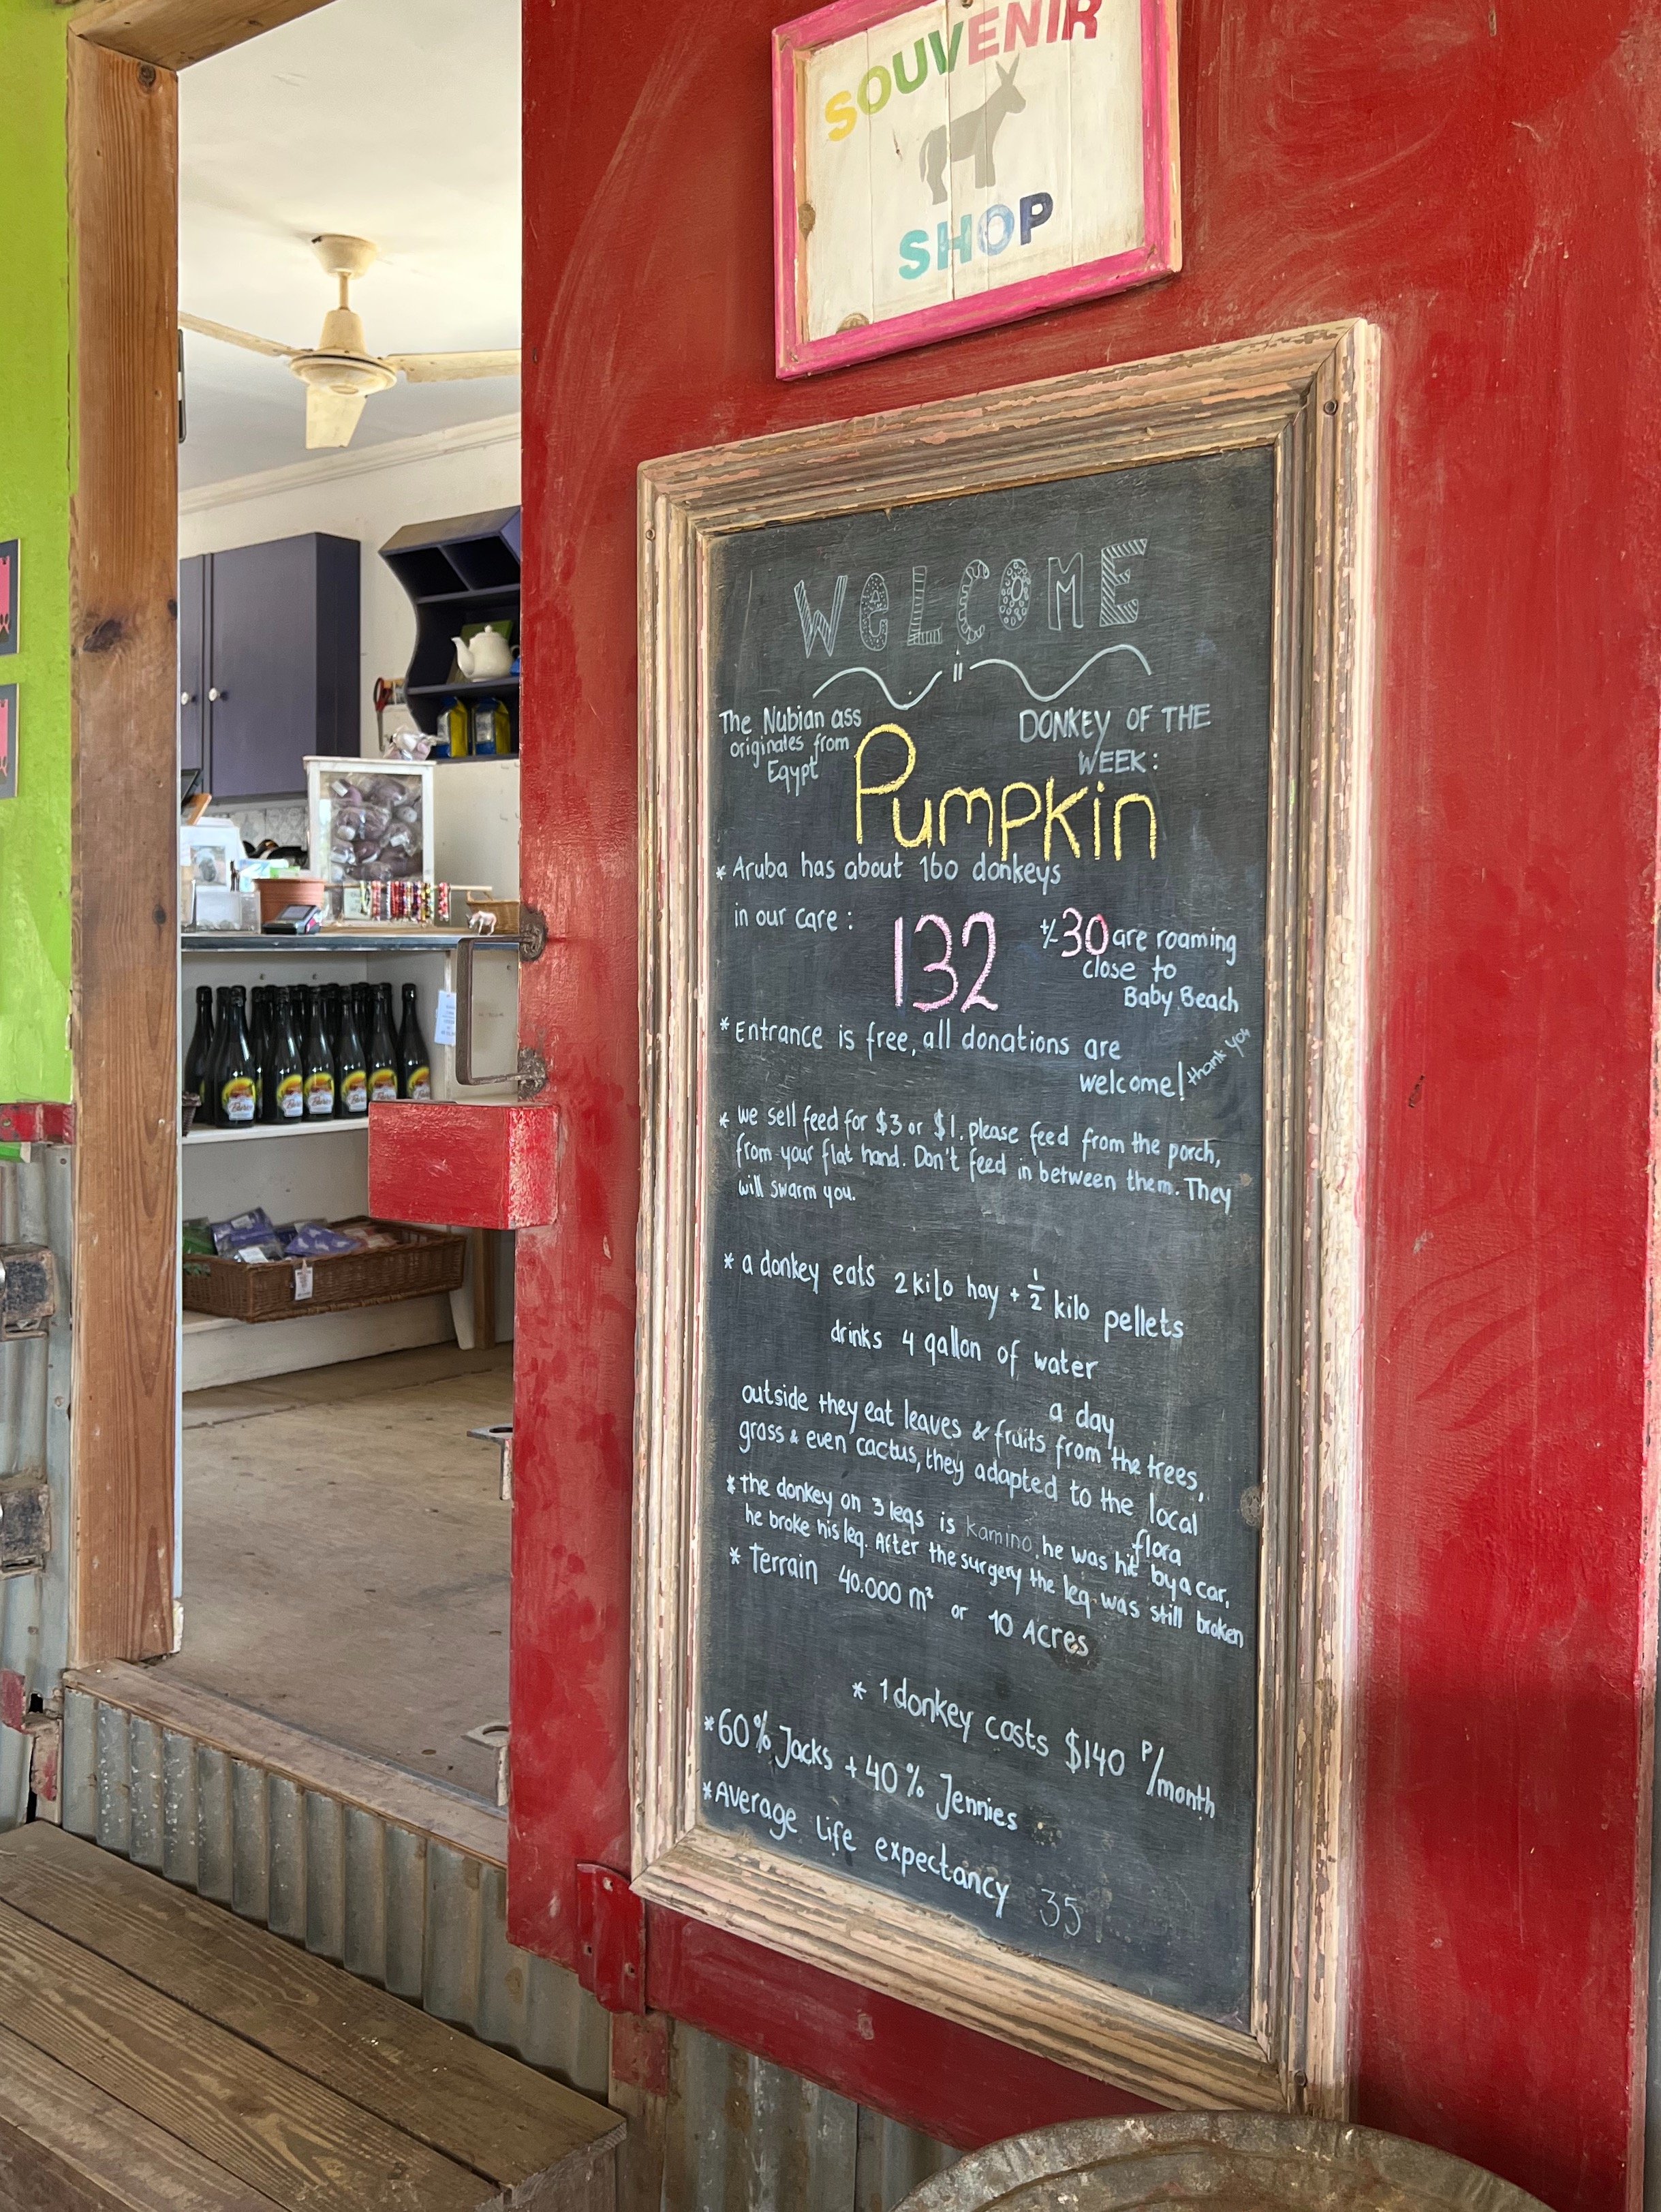 SOUVENIR
SHOP
WELCOME
The Nubian ass
originates from
Egypt
DONKEY OF THE
WEEK:
Pumpkin
* Aruba has about 160 donkeys
in our care: 132
+/- 30 are roaming
close to
Baby Beach
* Entrance is free, all donations are
welcome! thank you
* we sell feed for $3 or $1. please feed from the porch,
from your flat hand. Don't feed in between them. They
will swarm you.
* a donkey eats 2 kilo hay + 1/2 kilo pellets
drinks 4 gallon of water
a day
outside they eat leaves & fruits from the trees,
grass & even cactus, they adapted to the local
flora
* The donkey on 3 legs is kamino, he was hit by a car,
he broke his leg. After the surgery the leg was still broken
* Terrain 40.000 m² or 10 Acres
* 1 donkey costs $140 P/month
* 60% Jacks + 40% Jennies
* Average life expectancy 35